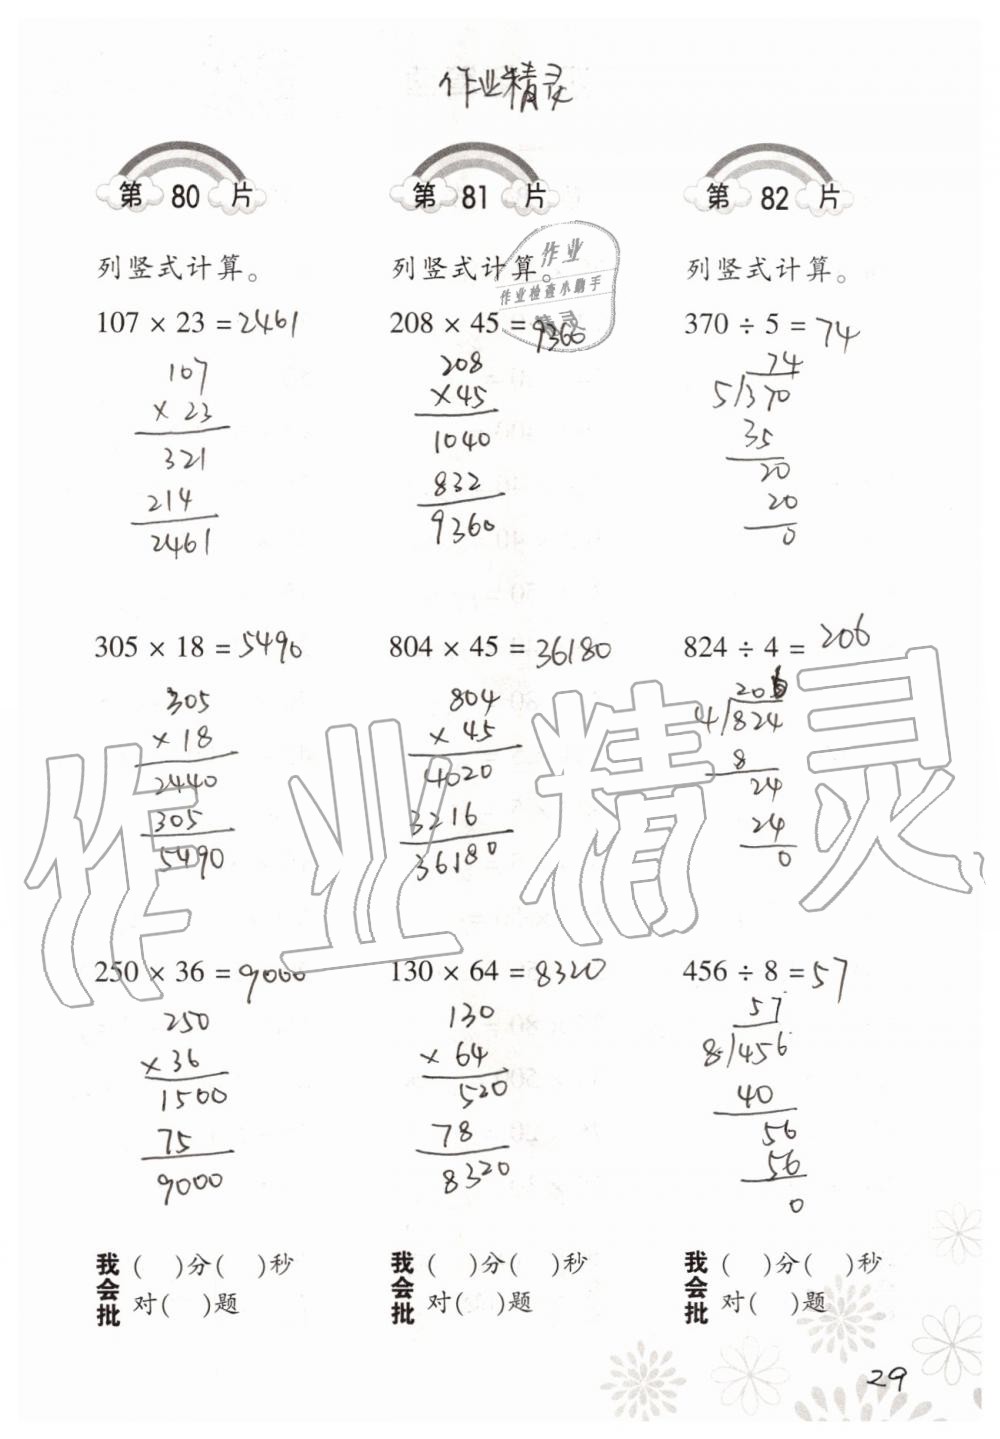 作业精灵
第 80 片
列竖式计算。
107 × 23 = 2461
107
× 23
321
214
2461
305 × 18 = 5490
305
× 18
2440
305
5490
250 × 36 = 9000
250
× 36
1500
75
9000
我会批
( )分( )秒
对( )题
第 81 片
列竖式计算。
208 × 45 = 9360
208
× 45
1040
832
9360
804 × 45 = 36180
804
× 45
4020
3216
36180
130 × 64 = 8320
130
× 64
520
78
8320
我会批
( )分( )秒
对( )题
第 82 片
列竖式计算。
370 ÷ 5 = 74
74
5)370
35
20
20
0
824 ÷ 4 = 206
206
4)824
8
24
24
0
456 ÷ 8 = 57
57
8)456
40
56
56
0
我会批
( )分( )秒
对( )题
作业
作业检查小助手
精灵
作业精灵
29